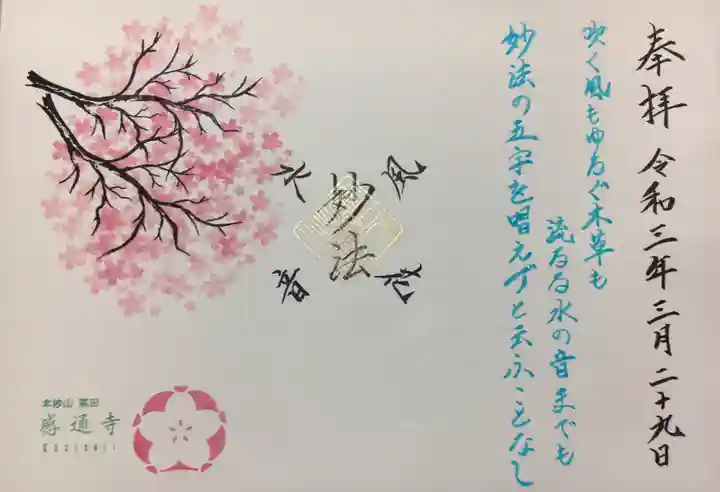 奉拝 令和三年三月二十九日
吹く風もゆるぐ木草も
流るる水の音までも
妙法の五字を唱えずと云ふことなし
風
成
妙法
水
音
本妙山 冨田
感通寺
Kantsuji